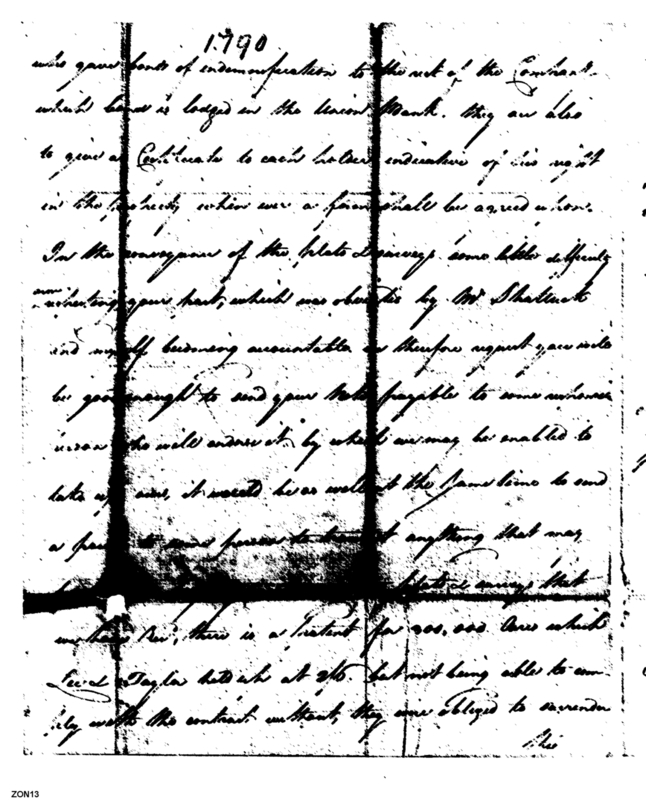 1790
who gave bonds of indemnification to the rest of the Compant.
which bond is lodged in the Union Bank. they are also
to give a Certificate to each holder indicative of his right
in the property when ever a form shall be agreed upon.
In the conveyance of the plats & surveys some little difficulty
your part, which was obviated by Mr Shattuck
and myself becoming accountable we therefore request you will
be good enough to send your Note payable to some
person who will endorse it by which we may be enabled to
take up ours, it would be as well at the same time to send
a to some person to transact anything that may
plats & surveys that
we have Recd, there is a Patent for 200,000 Acres which
Taylor but not being able to com-
ply with the contract without, they were obliged to surrender
this
ZON13